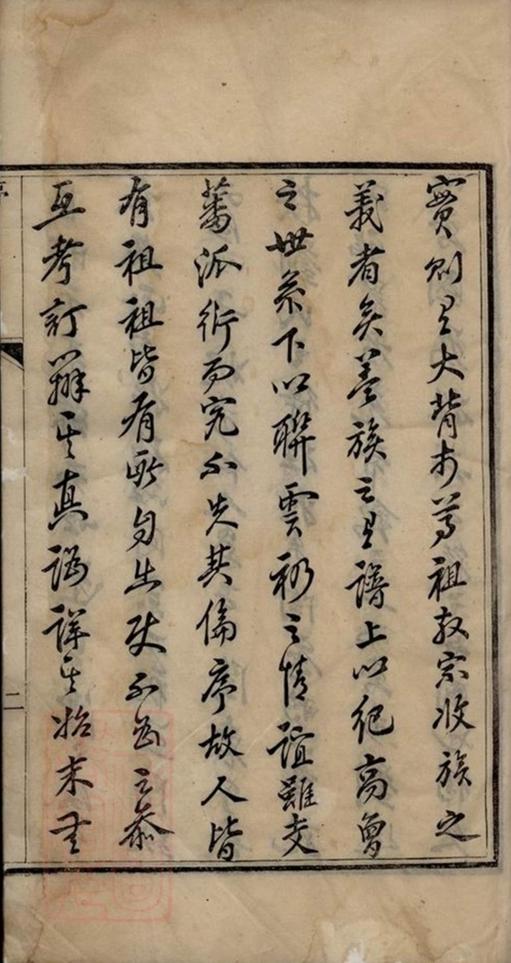 實則有大背於尊祖敬宗收族之
義者矣蓋族之有譜上以紀高曾
之世系下以聯雲礽之情誼雖支
蕃派衍而究不失其倫序故人皆
有祖祖皆有所自出使不為之參
互考訂辨其真譌詳其始末無
二